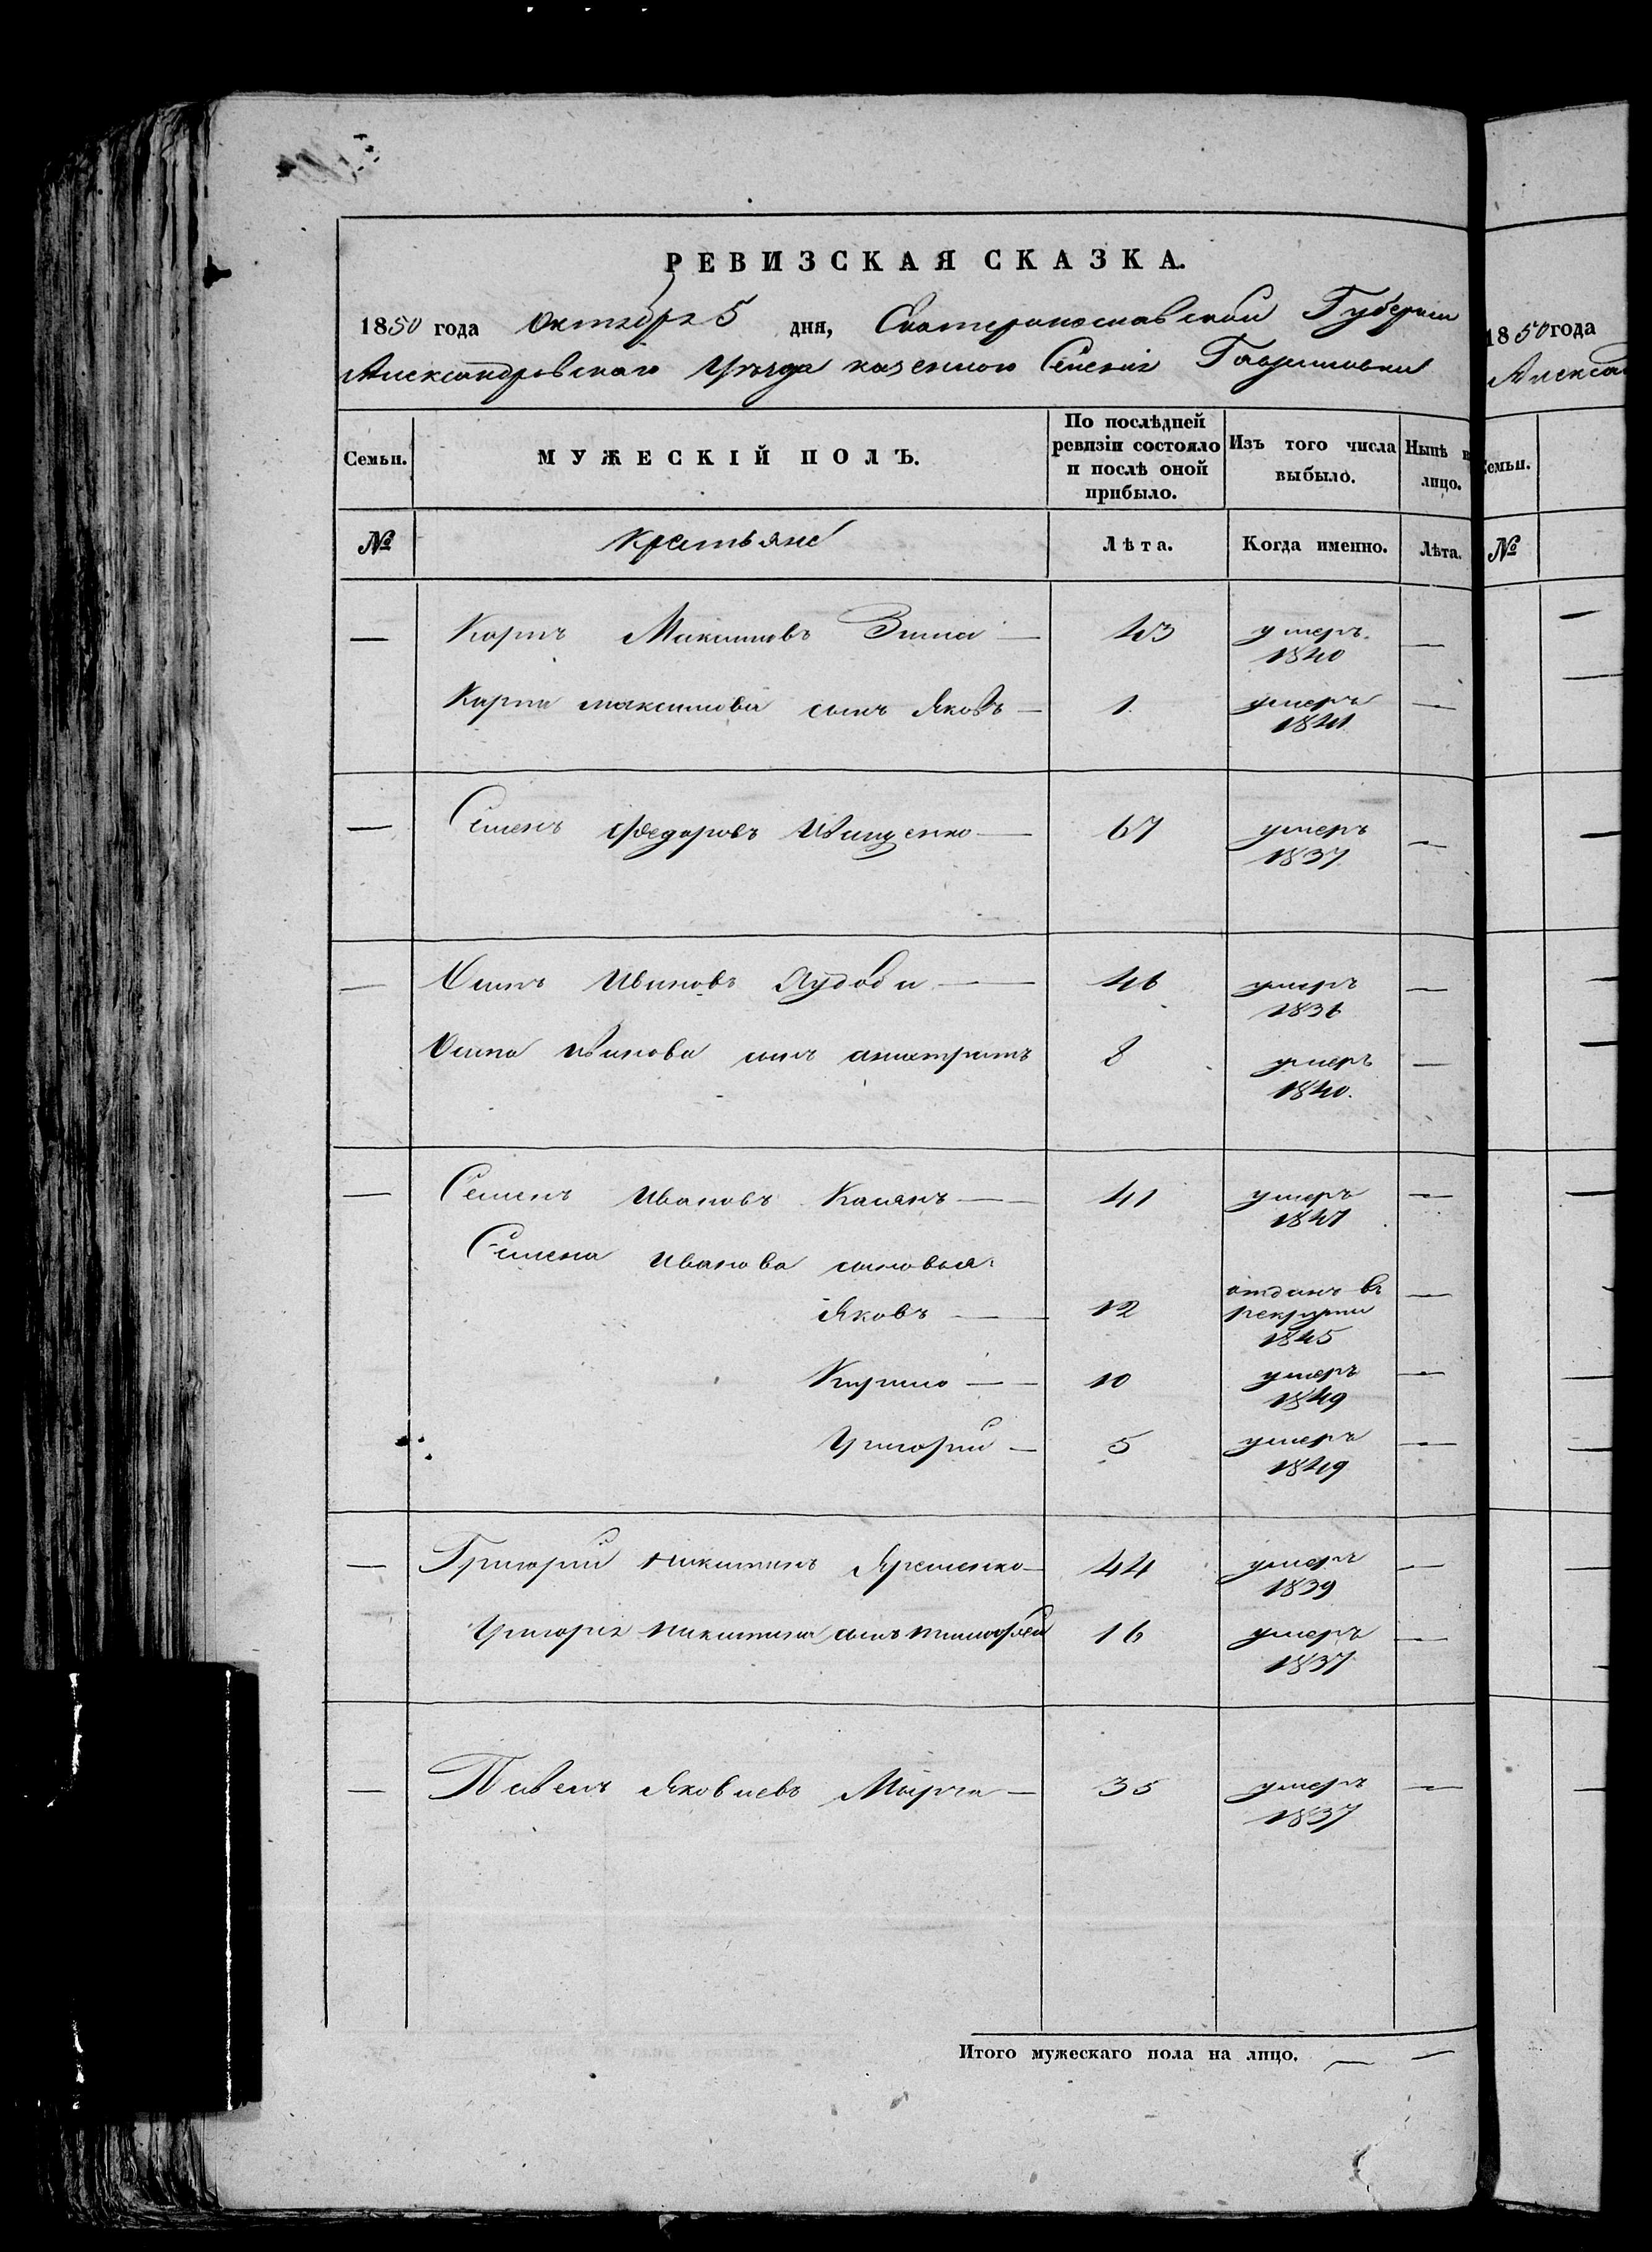 РЕВИЗСКАЯ СКАЗКА.
1850 года Октября 5 дня, Екатеринославской Губернии
Александровскаго Уѣзда казенного Селения Гавриловки
Семьи. МУЖЕСКІЙ ПОЛЪ. По послѣдней ревизіи состояло и послѣ оной прибыло. Изъ того числа выбыло. Нынѣ н лицо.
№ Крестьяне Лѣта. Когда именно. Лѣта.
— Карпъ Максимовъ Зима — 43 умеръ 1840 —
Карпа Максимова сынъ Яковъ — 1 умеръ 1841 —
— Семенъ Федоровъ Иващенко — 67 умеръ 1837 —
— Осипъ Ивановъ — 46 умеръ 1836 —
Осипа Иванова сынъ 8 умеръ 1840. —
— Семенъ Ивановъ Касянъ — 41 умеръ 1847 —
Семена Иванова сыновья:
Яковъ — 12 отданъ въ рекруты 1845 —
Кирило — 10 умеръ 1849 —
Григорий — 5 умеръ 1849 —
— Григорий Никитинъ Яременко — 44 умеръ 1839 —
Григория Никитина сынъ Тимофей 16 умеръ 1837 —
— Павелъ Яковлевъ — 35 умеръ 1837 —
Итого мужескаго пола на лицо. — —
1850 года
Алекса
Семьи.
№